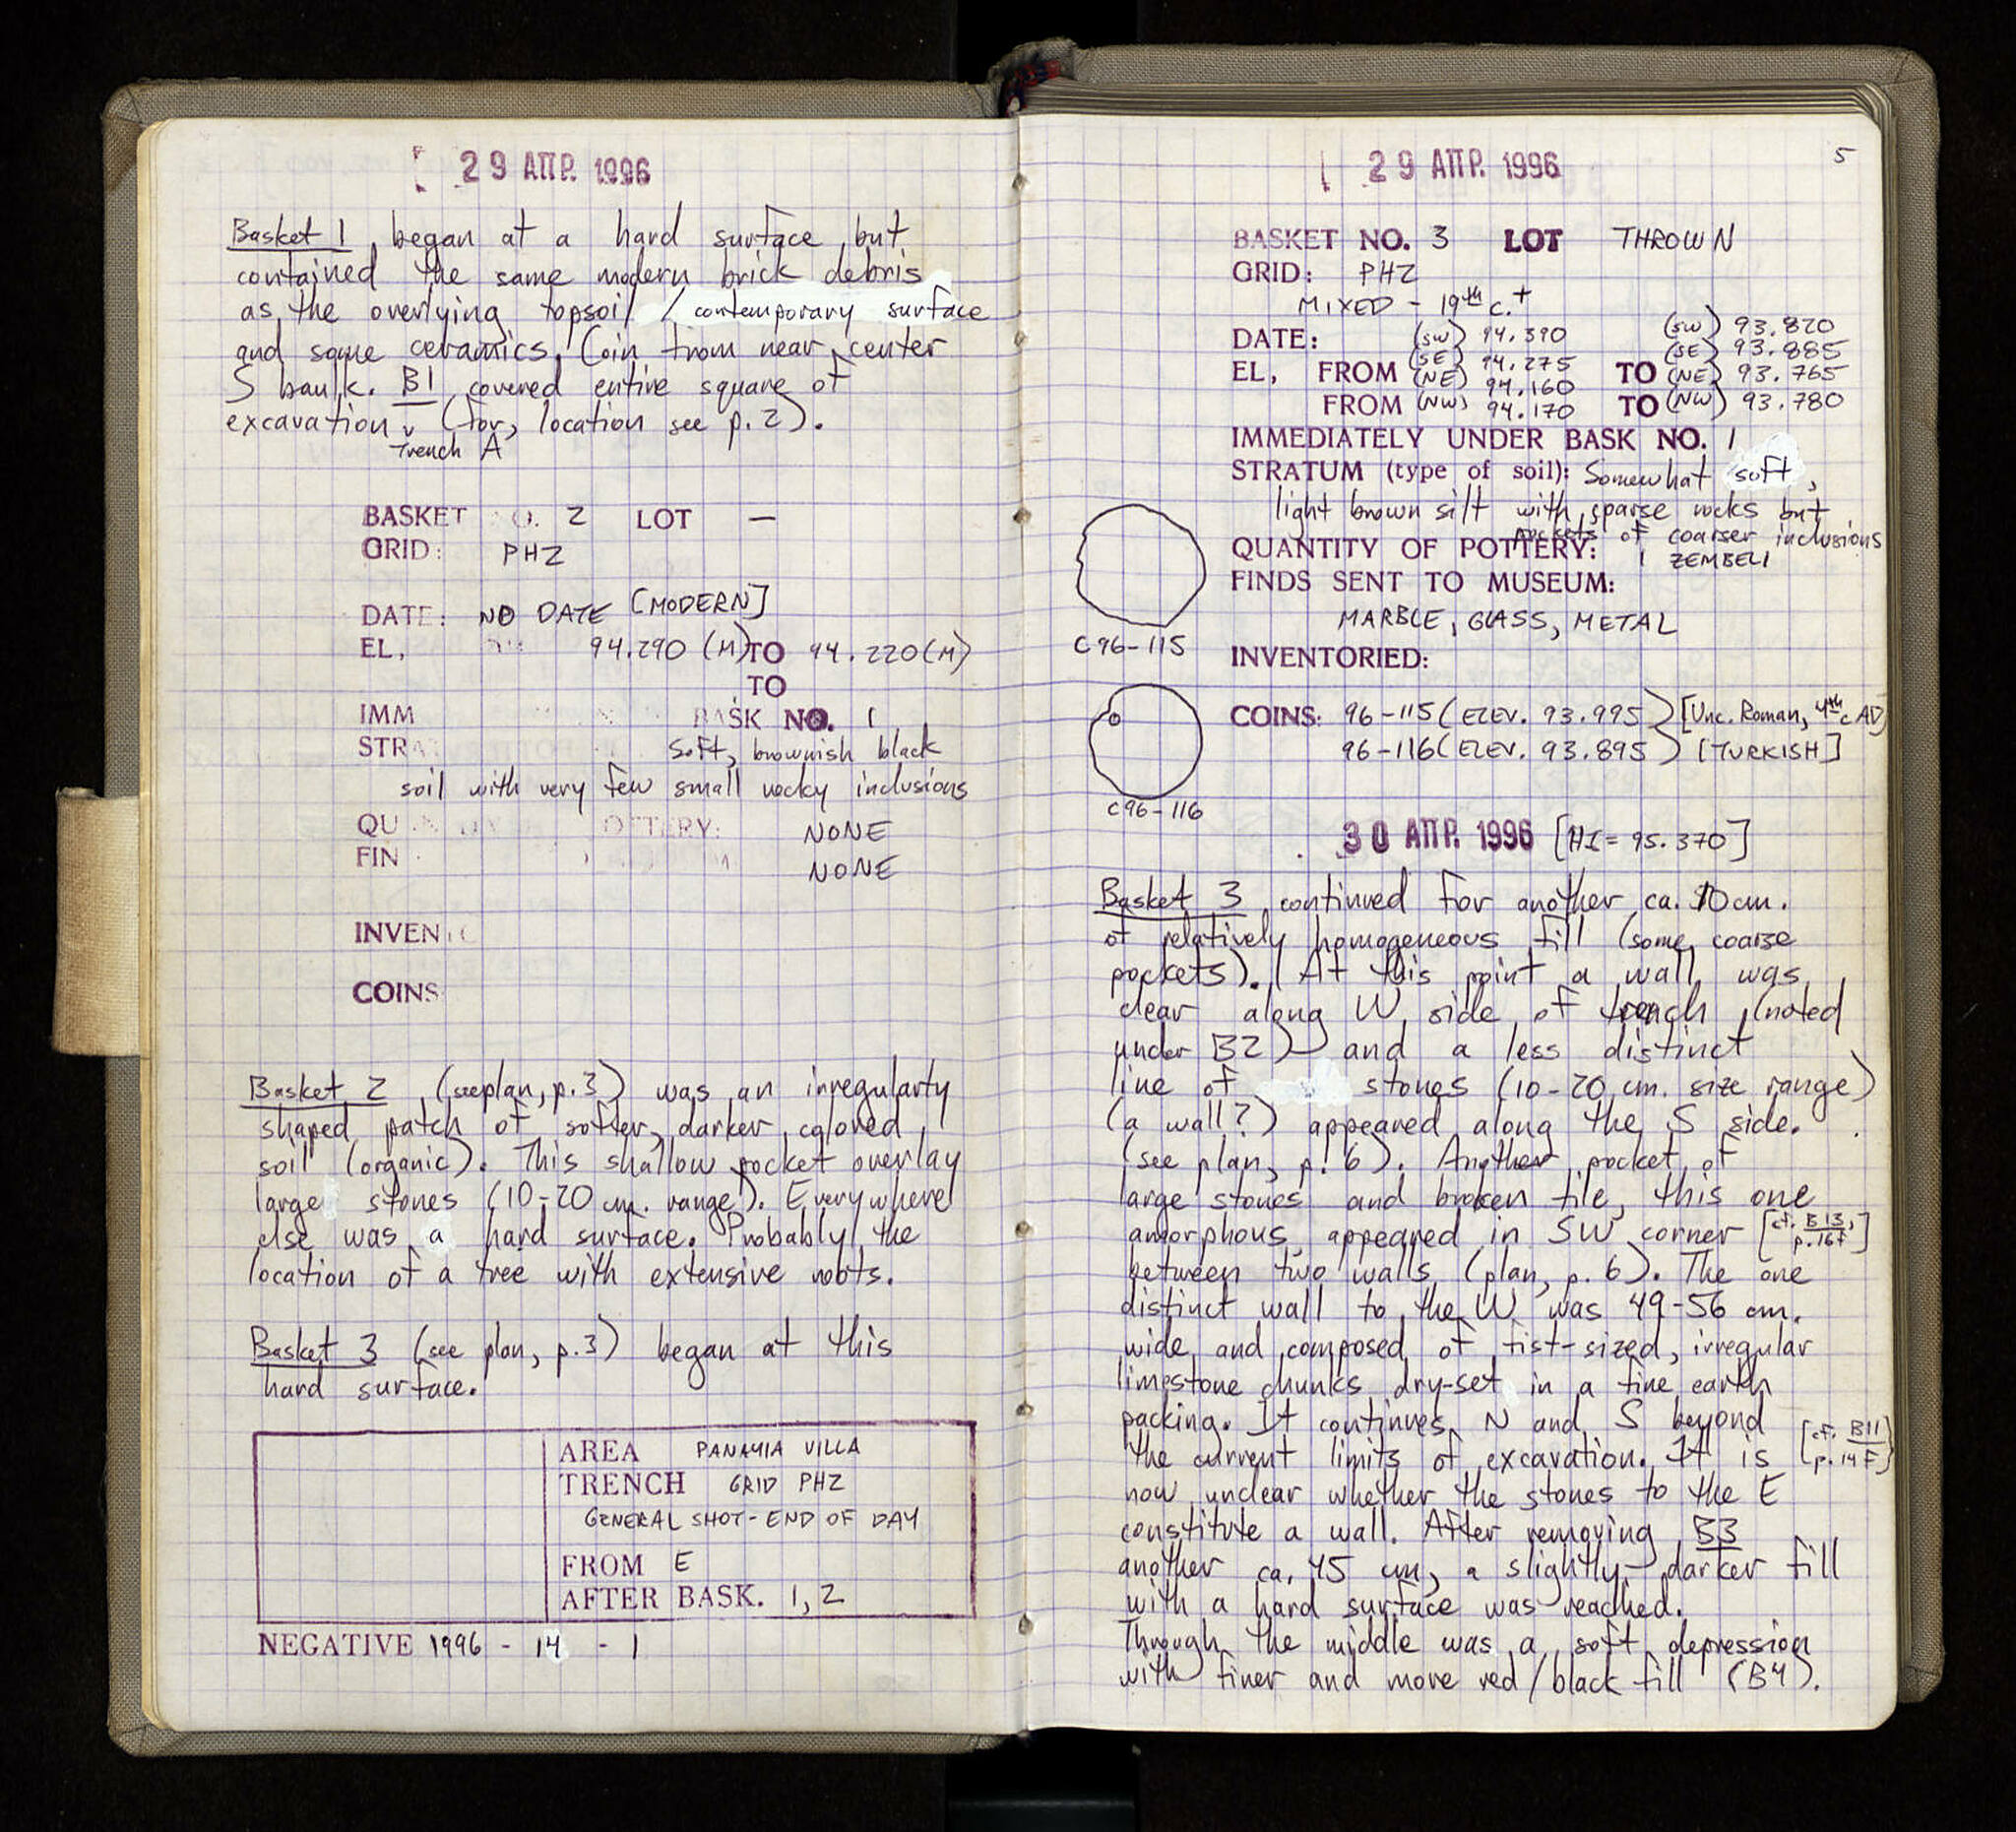 29 ΑΠΡ. 1996
Basket 1 began at a hard surface but
contained the same modern brick debris
as the overlying topsoil / contemporary surface
and some ceramics. Coin from near center
S baulk. B1 covered entire square of
excavation (for location see p. 2).
Trench A
BASKET NO. 2 LOT —
GRID: PHZ
DATE: NO DATE [MODERN]
EL, 94.290 (M) TO 94.220 (M)
TO
IMM BASK NO. 1
STRA Soft, brownish black
soil with very few small rocky inclusions
QU OTTERY: NONE
FIN M NONE
INVEN
COINS
Basket 2 (see plan, p. 3) was an irregularly
shaped patch of softer, darker colored
soil (organic). This shallow pocket overlay
large stones (10-20 cm. range). Everywhere
else was a hard surface. Probably the
location of a tree with extensive roots.
Basket 3 (see plan, p. 3) began at this
hard surface.
AREA PANAYIA VILLA
TRENCH GRID PHZ
GENERAL SHOT - END OF DAY
FROM E
AFTER BASK. 1, 2
NEGATIVE 1996 - 14 - 1
5
29 ΑΠΡ. 1996
BASKET NO. 3 LOT THROWN
GRID: PHZ
MIXED - 19th c. +
DATE: (SW) 94.390 (SW) 93.820
(SE) 94.275 (SE) 93.885
EL, FROM (NE) 94.160 TO (NE) 93.765
FROM (NW) 94.170 TO (NW) 93.780
IMMEDIATELY UNDER BASK NO. 1
STRATUM (type of soil): Somewhat soft,
light brown silt with sparse rocks but
pockets of coarser inclusions
QUANTITY OF POTTERY: 1 ZEMBELI
FINDS SENT TO MUSEUM:
MARBLE, GLASS, METAL
C 96-115
INVENTORIED:
COINS: 96-115 (ELEV. 93.995) [Unc. Roman, 4th c AD]
96-116 (ELEV. 93.895) [TURKISH]
C 96-116
30 ΑΠΡ. 1996 [HI = 95.370]
Basket 3 continued for another ca. 10 cm.
of relatively homogeneous fill (some coarse
pockets). At this point a wall was
clear along W side of trench (noted
under B2) and a less distinct
line of stones (10-20 cm. size range)
(a wall?) appeared along the S side.
(see plan, p. 6). Another pocket of
large stones and broken tile, this one
amorphous, appeared in SW corner [cf. B13, p. 16f]
between two walls (plan, p. 6). The one
distinct wall to the W was 49-56 cm.
wide and composed of fist-sized, irregular
limestone chunks dry-set in a fine earth
packing. It continues N and S beyond
the current limits of excavation. It is [cf. B11 p. 14 F]
now unclear whether the stones to the E
constitute a wall. After removing B3
another ca. 45 cm, a slightly darker fill
with a hard surface was reached.
Through the middle was a soft depression
with finer and more red/black fill (B4).